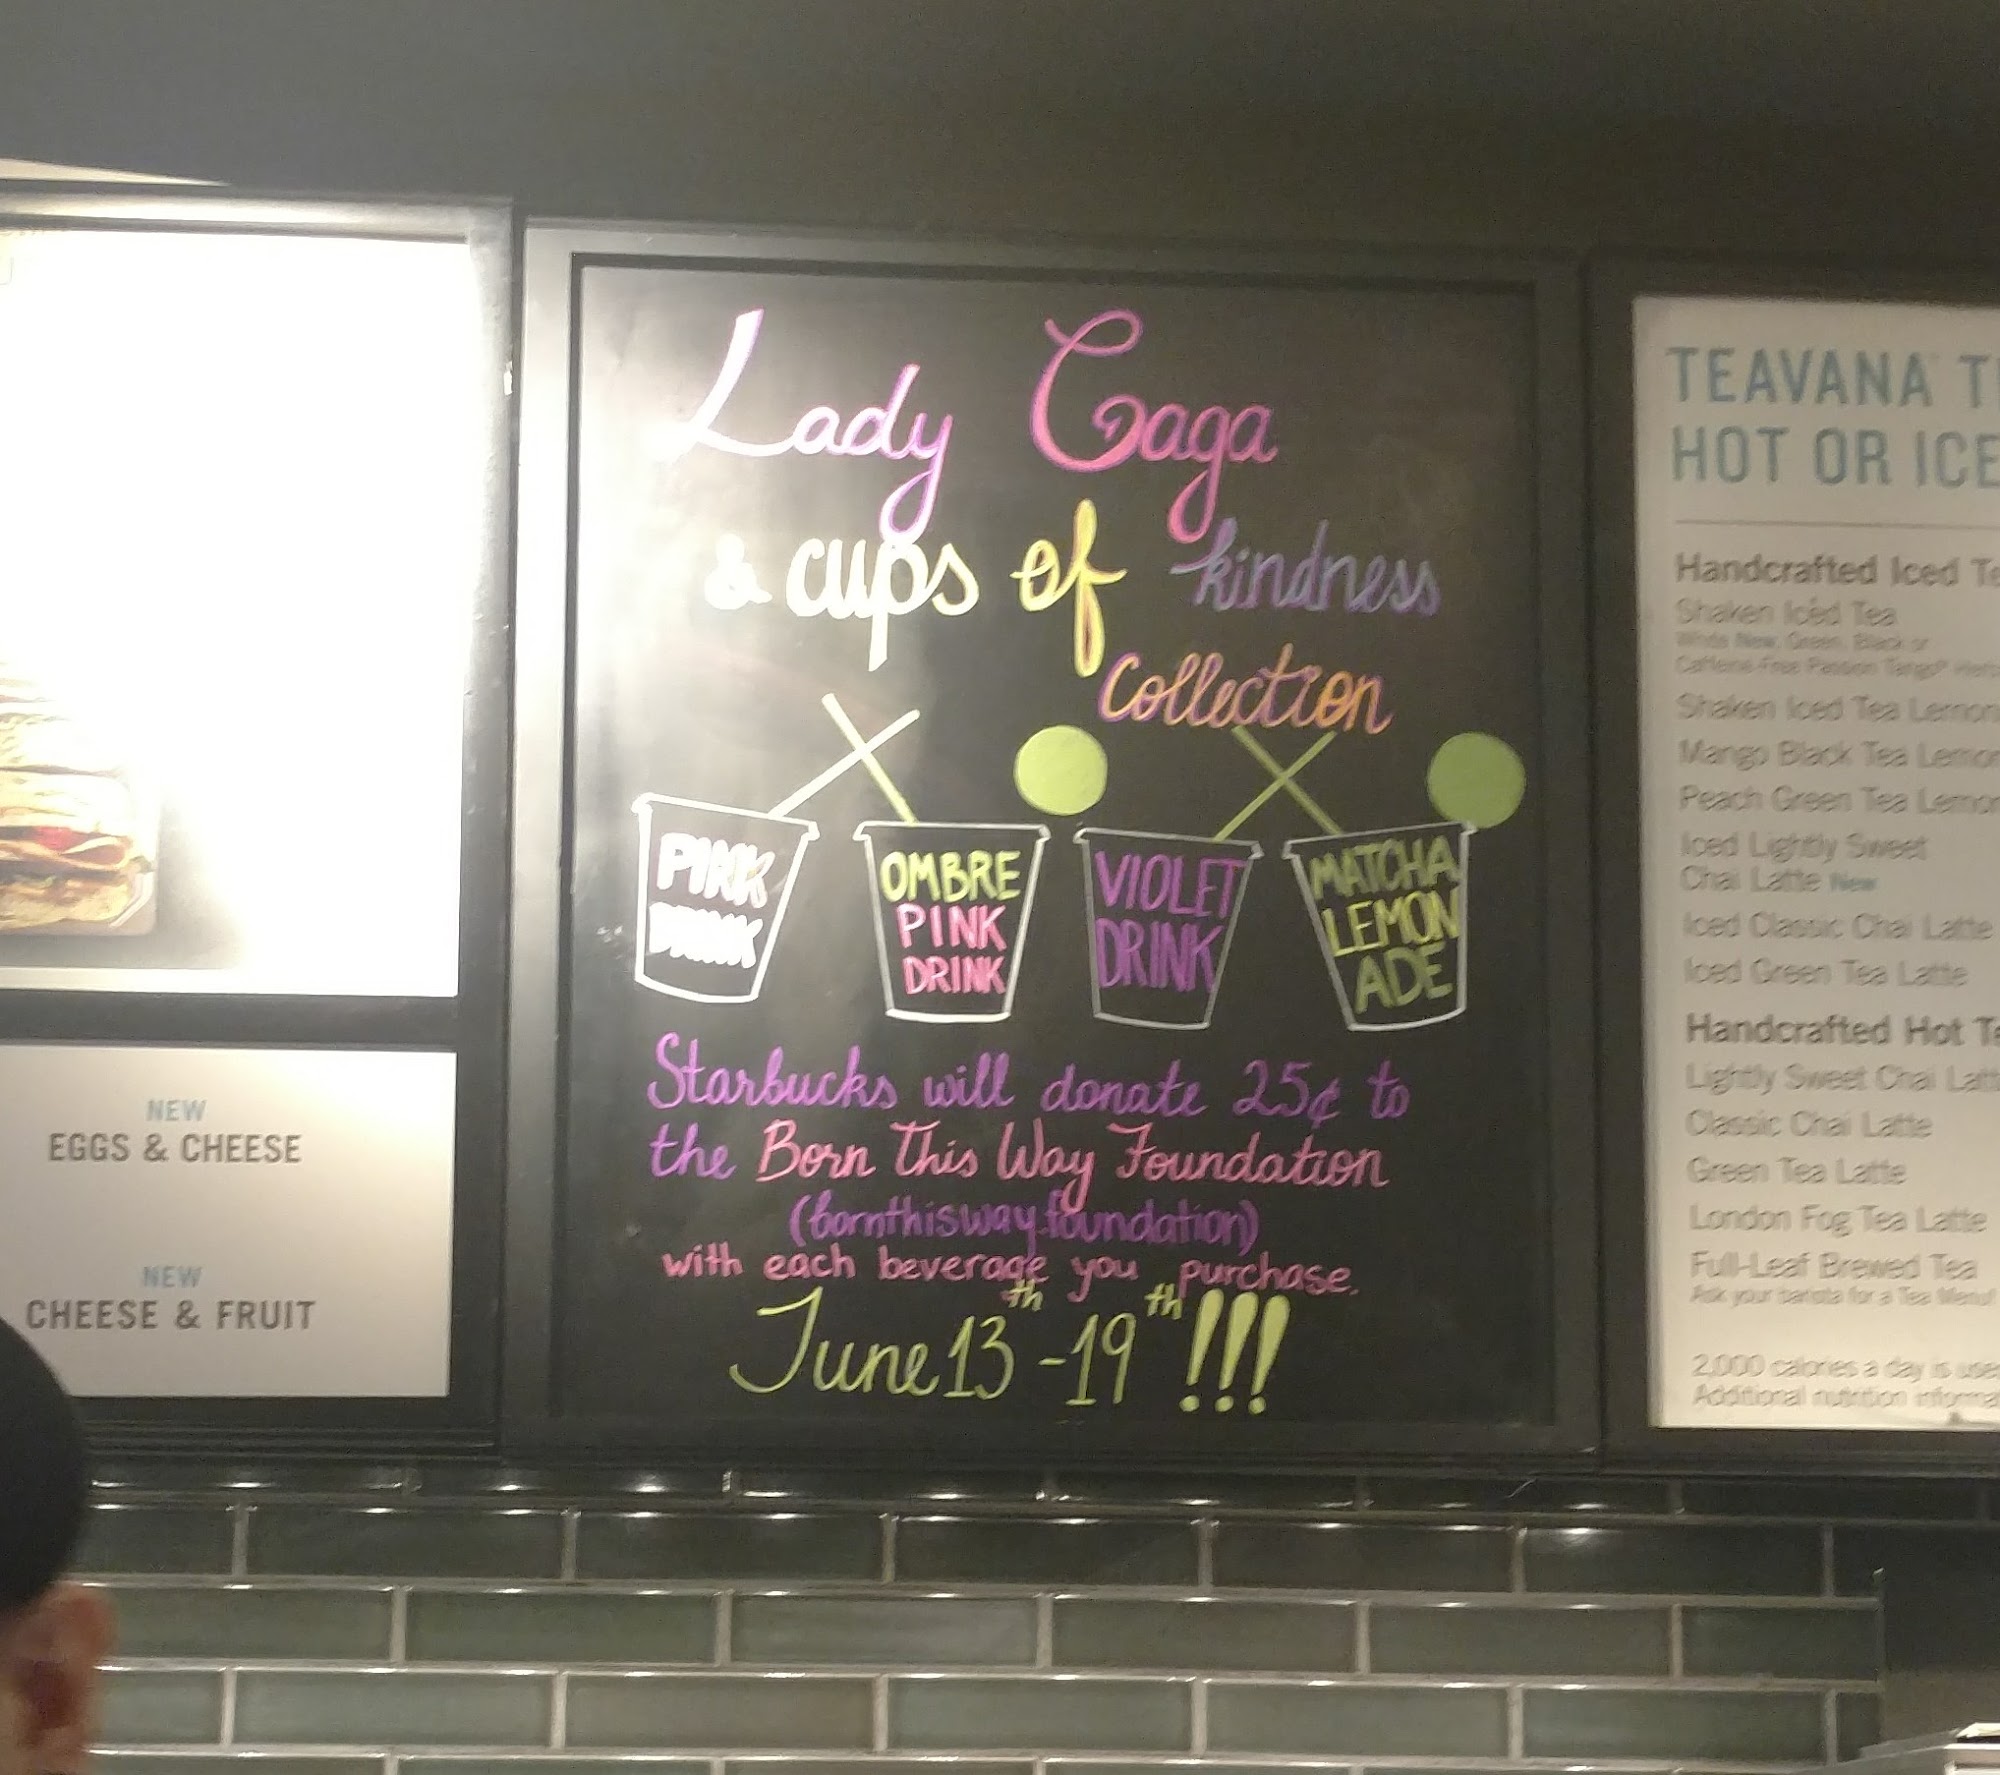 NEW
EGGS & CHEESE
NEW
CHEESE & FRUIT
Lady Gaga
& cups of kindness
collection
PINK
DRINK
OMBRE
PINK
DRINK
VIOLET
DRINK
MATCHA
LEMON
ADE
Starbucks will donate 25¢ to
the Born This Way Foundation
(bornthisway.foundation)
with each beverage you purchase.
June 13th - 19th !!!
TEAVANA
HOT OR ICE
Handcrafted Iced Te
Shaken Iced Tea
New, Green, Black or
Caffeine-Free Passion Tango®
Shaken Iced Tea Lemon
Mango Black Tea Lemon
Peach Green Tea Lemon
Iced Lightly Sweet
Chai Latte New
Iced Classic Chai Latte
Iced Green Tea Latte
Handcrafted Hot Te
Lightly Sweet Chai Latt
Classic Chai Latte
Green Tea Latte
London Fog Tea Latte
Full-Leaf Brewed Tea
Ask your barista for a Tea Menu!
2,000 calories a day is use
Additional nutrition informa